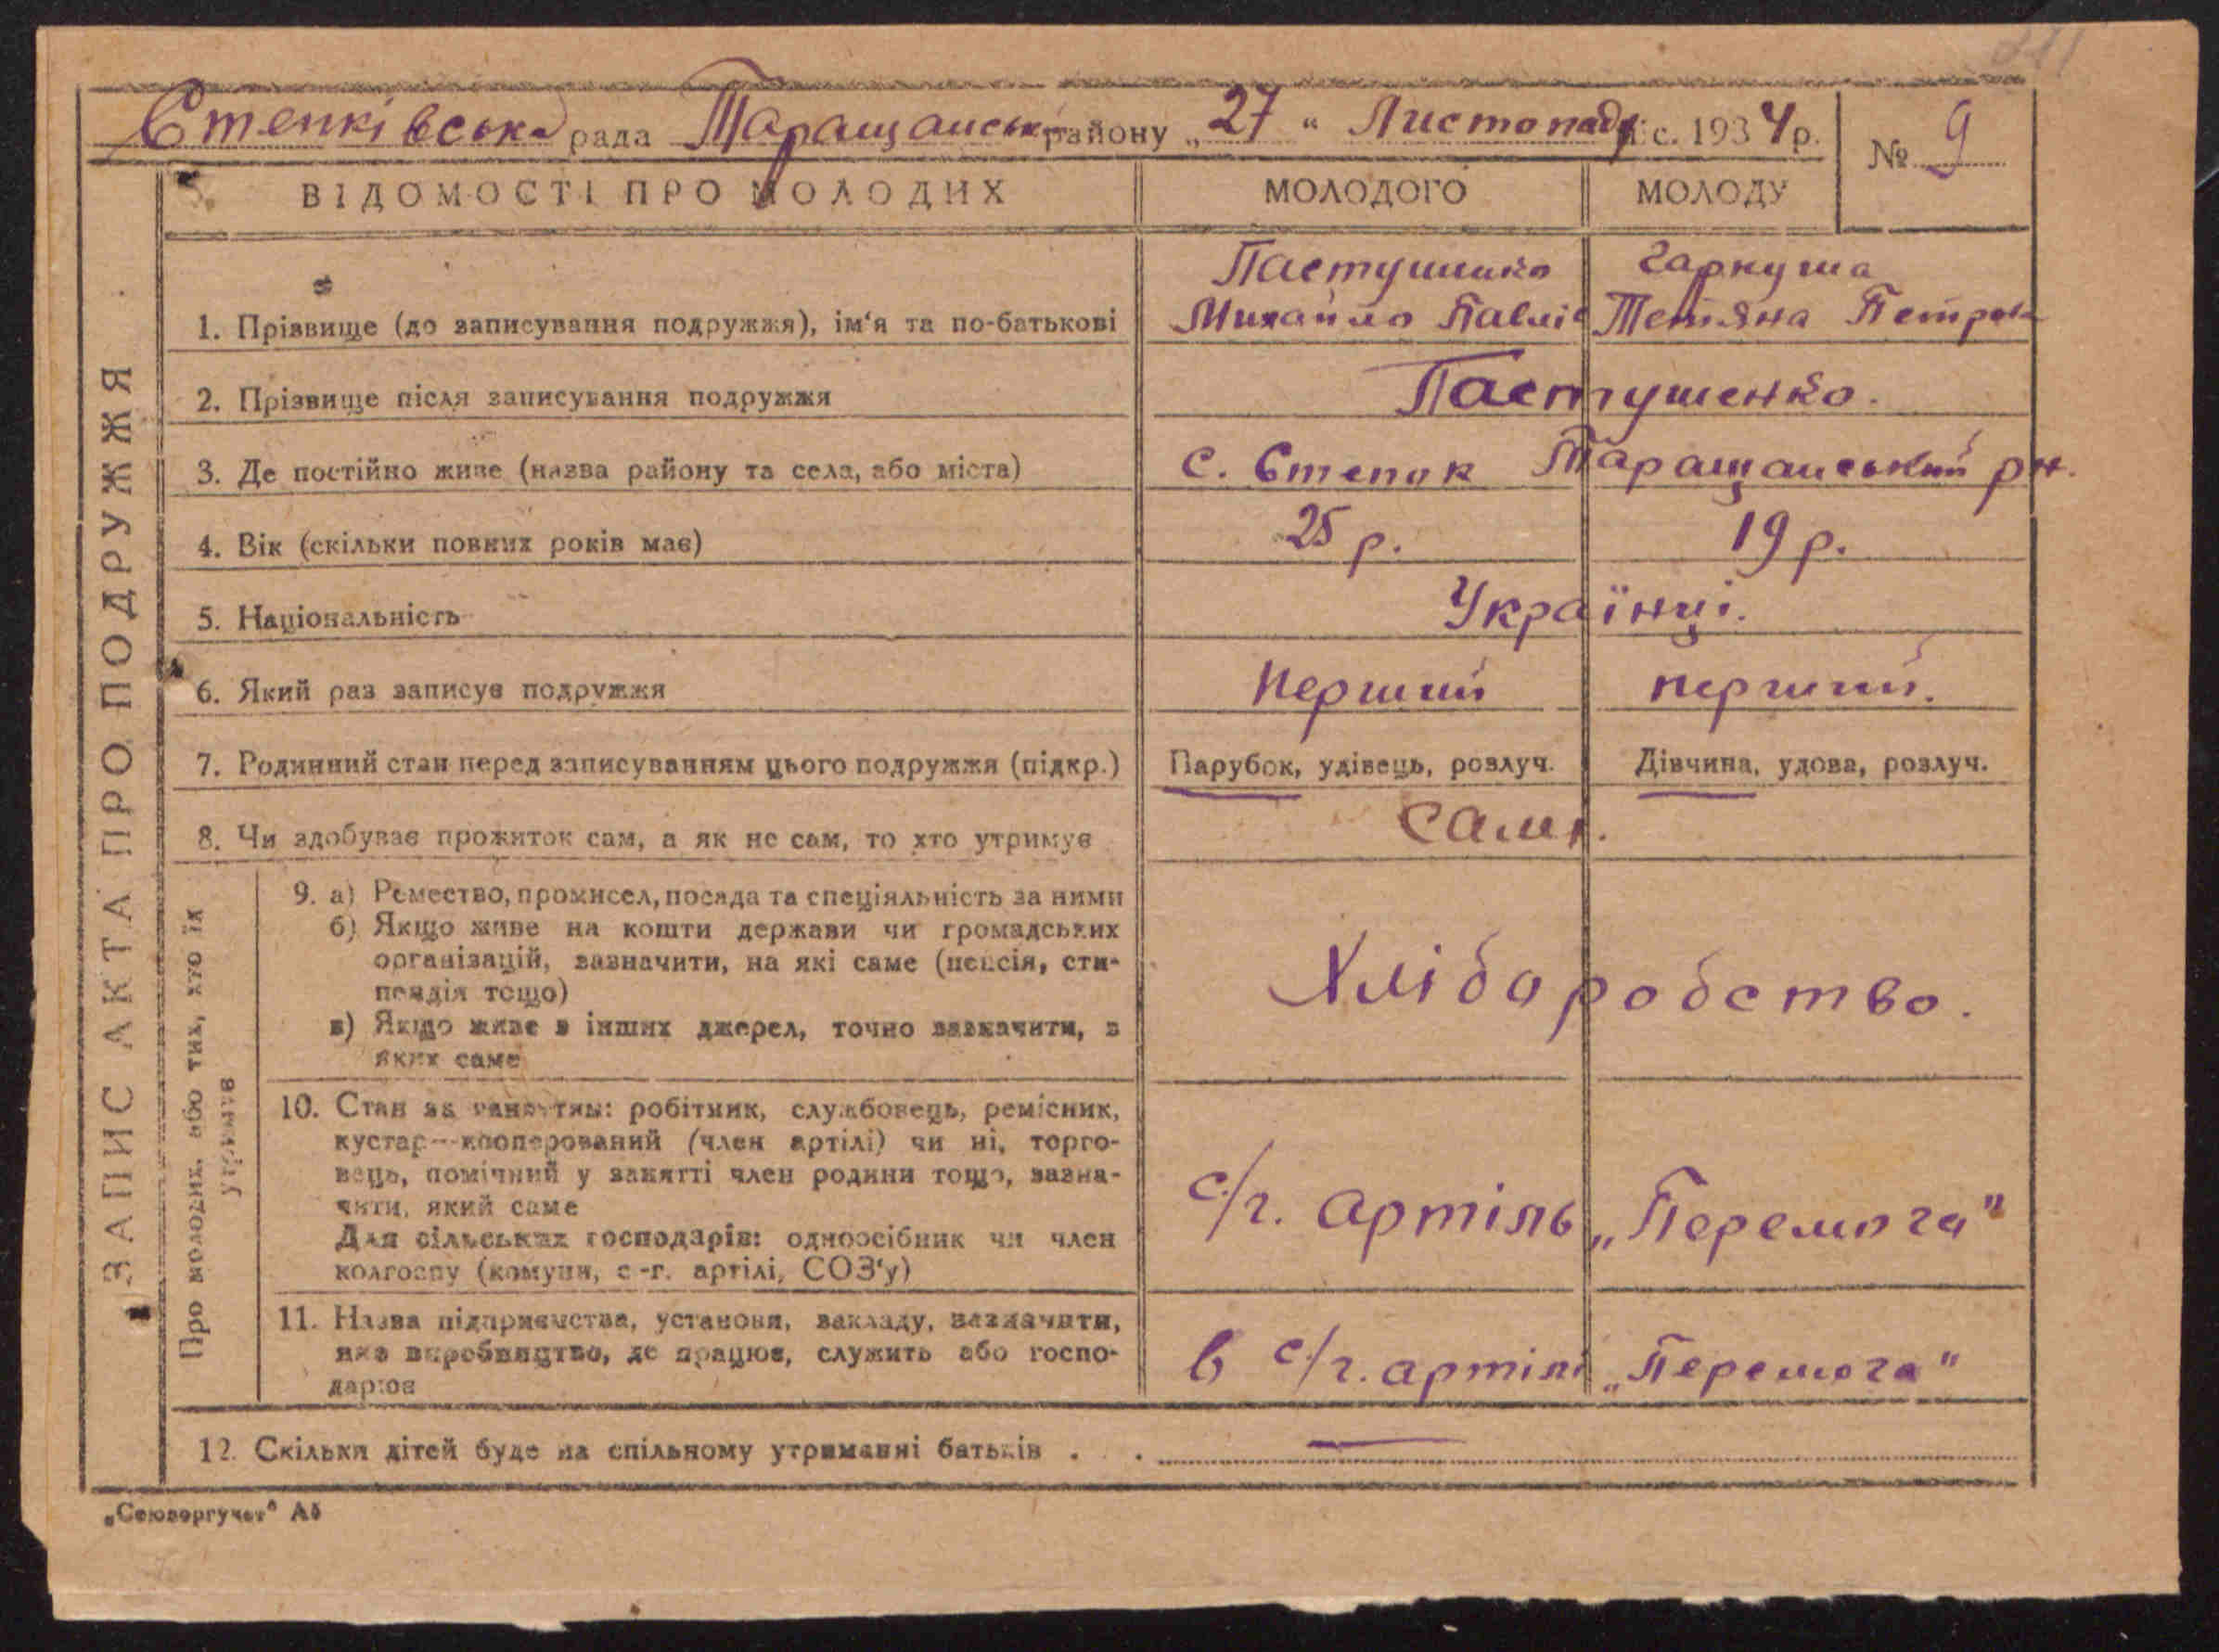 Степківська рада Таращанськ району „27“ Листопада міс. 1934 р. № 9
ВІДОМОСТІ ПРО МОЛОДИХ МОЛОДОГО МОЛОДУ
Пастушенко Гаркуша
1. Прізвище (до записування подружжя), ім'я та по-батькові Михайло Павлів Тетяна Петров
2. Прізвище після записування подружжя Пастушенко.
3. Де постійно живе (назва району та села, або міста) с. Степок Таращанський рн.
4. Вік (скільки повних років має) 25 р. 19 р.
5. Національність Українці.
6. Який раз записує подружжя Перший перший.
7. Родинний стан перед записуванням цього подружжя (підкр.) Парубок, удівець, розлуч. Дівчина, удова, розлуч.
8. Чи здобуває прожиток сам, а як не сам, то хто утримує Самі.
9. а) Ремество, промисел, посада та спеціяльність за ними
б) Якщо живе на кошти держави чи громадських
організацій, зазначити, на які саме (пенсія, сти-
пендія тощо)
в) Якщо живе з інших джерел, точно зазначити, з
яких саме
Хлібаробство.
10. Стан за заняттям: робітник, службовець, ремісник,
кустар—кооперований (член артілі) чи ні, торго-
вець, помічний у занятті член родини тощо, зазна-
чити, який саме
Для сільських господарів: одноосібник чи член
колгоспу (комуни, с-г. артілі, СОЗ'у)
с/г. артіль „Перемога"
11. Назва підприємства, установи, закладу, зазначити,
яке виробництво, де працює, служить або госпо-
дарює
в с/г. артілі „Перемога"
12. Скільки дітей буде на спільному утриманні батьків . . —
ЗАПИС АКТА ПРО ПОДРУЖЖЯ
Про молодих, або тих, хто їх
утримує
„Союзоргучет" А5